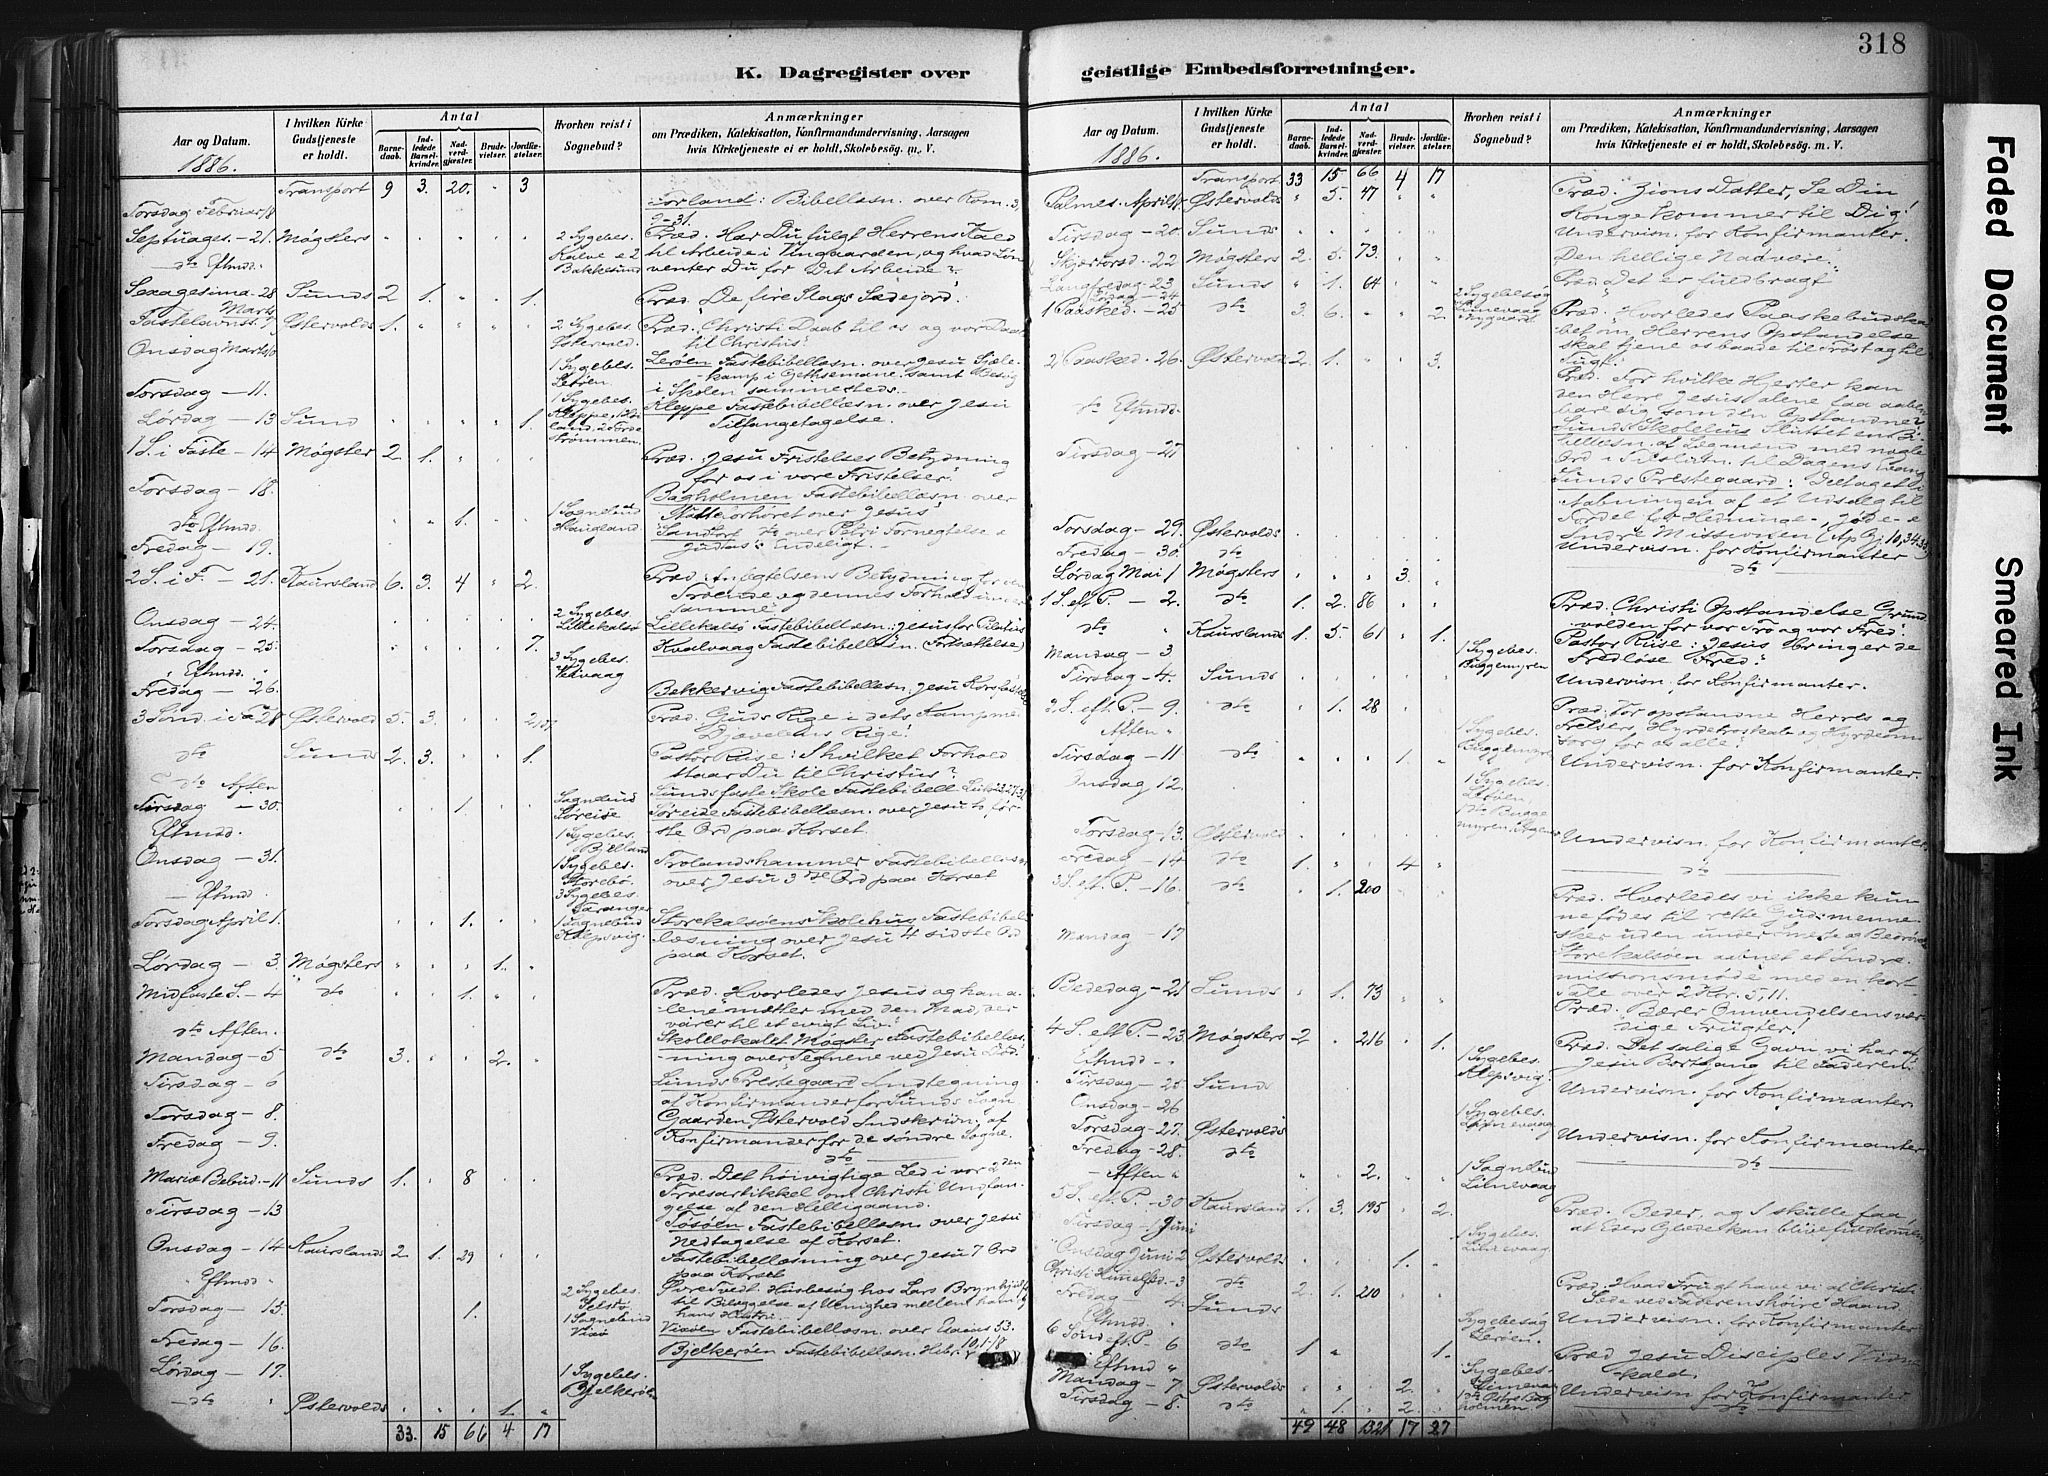 318
K. Dagregister over geistlige Embedsforretninger.
Aar og Datum.
1886.
I hvilken Kirke Gudstjeneste er holdt.
Antal
Barnedaab.
Indledede Barselkvinder.
Nadverdgjæster.
Brudevielser.
Jordfæstelser.
Hvorhen reist i Sognebud?
Anmærkninger
om Prædiken, Katekisation, Konfirmandundervisning, Aarsagen
hvis Kirketjeneste ei er holdt, Skolebesøg. m. V.
Transport 9 3. 20. " 3
Torsdag Februar 18 Forland: Bibellæsn. over Rom. 3, 9-31.
Septuages. - 21. Møgsters 2 Sygebes. Præd. Har Du fulgt Herrens Kald
dto Eftmd. til Arbeide i Vingaarden, og hvad Løn
venter Du for Dit Arbeide?
Sexagesima - 28 Sunds 2 1. " " 1. Præd. De fire Slags Sædejord.
Fastelavnss. Marts 7 Østervolds 1. 2 Sygebes. Østervold. Præd. Christi Daab til os og vor Daab
til Christus.
Onsdag Marts 10 1 Sygebes. Lerøen. Lerøen Fastebibellæsn. over Jesu Sjæle-
kamp i Gethsemane, samt Besøg
Torsdag - 11. i Skolen sammesteds.
Lørdag - 13 Sund 1. 1 Sygebes. Kleppe Fastebibellæsn. over Jesu
Tilfangetagelse.
1 S. i Faste - 14 Møgster 2. 1. Præd. Jesu Fristelses Betydning
for os i vore Fristelser.
Torsdag - 18. Bagholmen Fastebibellæsn. over
dto Eftmd. 1. 1 Sognebud Haugland Forhøret over Jesus
Fredag - 19. Sandtorv dto over Petri Fornegtelse &
Judas's Endeligt. -
2 S. i F. - 21. Kaursland 6. 3. 4 " 2. Præd. Anfegtelsens Betydning for den
Troende og dennes Forhold under
samme
Onsdag - 24. 2 Sygebes. Lillekalsø Lillekalsø Fastebibellæsn.: Jesus for Pilatus
Torsdag - 25. 7. Kvalvaag Fastebibellæsn. (Fortsættelse)
" Eftmd. 3 Sygebes.
Fredag - 26. Bekkervig Fastebibellæsn. Jesu Korsfæstelse
3 Sønd. i Fa. 28 Østervold 5. 3. Præd. Guds Rige i dets Kamp m.
Djævelens Rige.
dto Sunds 2. 3. 1. Pastor Riise: I hvilket Forhold
staar Du til Christus?
dto Aften Sunds faste Skole Fastebibell.
Tirsdag - 30. 1. Sognebud Søreide Søreide Fastebibellæsn. over Jesu to før-
Eftmd. 1 Sygebes. Bjelland ste Ord paa Korset.
Onsdag - 31. 1 Sygebes. Storebø. Trolandshammer Fastebibellæsn.
- Eftmd 3 Sygebes. over Jesu 3de Ord paa Korset
Torsdag April 1. 1. 1 Sognebud Klepsvig. Storekalsøens Skolehus Fastebibel-
læsning over Jesu 4 sidste Ord
paa Korset.
Lørdag - 3. Møgsters 1.
Midfaste S. - 4 dto 1. Præd. Hvorledes Jesus og han a-
lene mætter med den Mad, der
varer til et evigt Liv.
dto Aften. Skolelokalet Møgster Fastebibellæs-
Mandag - 5 dto 3. " " 2. ning over Tegnene ved Jesu Død.
Tirsdag - 6 Sunds Prestegaard Indtegning
af Konfirmander for Sunds Sogn.
Torsdag - 8. Gaarden Østervold Indskrivn. af
Fredag - 9. Konfirmander for de søndre Sogne.
dto
Mariæ Bebud. - 11 Sunds 1. " 8 Præd. Det høivigtige Led i vor 2den
Troesartikkel om Christi Undfan-
gelse af den Helligaand.
Tirsdag - 13 Tøsøen Fastebibellæsn. over Jesu
Nedtagelse af Korset.
Onsdag - 14 Kaurslands 2 1. 29 Fastebibellæsning over Jesu 7 Ord
paa Korset
" Eftmd " 2 Sygebes. Øvre Tvedt. Husbesøg hos Lars Brynhild
Torsdag - 15. 1. 1 Sognebud Vixø til Bilæggelse af Uenighed mellem ham og
hans Hustru.
Fredag - 16. Vixøen Fastebibellæsn. over Esaias 53.
Lørdag - 17. 1 Sygebes. Bjelkerøen Bjelkerøen Fastebibellæsn. Hebr. 10, 1-18
dto " Østervolds 1
33. 15 66 4 17
Aar og Datum.
1886.
I hvilken Kirke Gudstjeneste er holdt.
Antal
Barnedaab.
Indledede Barselkvinder.
Nadverdgjæster.
Brudevielser.
Jordfæstelser.
Hvorhen reist i Sognebud?
Anmærkninger
om Prædiken, Katekisation, Konfirmandundervisning, Aarsagen
hvis Kirketjeneste ei er holdt, Skolebesøg. m. V.
Transport 33 15 66 4 17
Palmes. April 18 Østervolds " 5. 47 Præd. Zions Datter, Se Din
Konge kommer til Dig!
Tirsdag - 20. Sunds Undervisn. for Konfirmanter.
Skjærtorsd. - 22 Møgsters 2. 5. 73. Den hellige Nadvere.
Langfredag - 23 Sunds " 1. 64 Præd. Det er fuldbragt
Lørdag - 24. 2 Sygebesøg
1 Paasked. - 25 dto 3. 6. " " 2. Præd. Hvorledes Paaskebudska-
bet om Herrens Opstandelse
skal tjene os baade til Trøst og til
Tugt.
2 Paasked. - 26. Østervold 2. 1. " " 3. Præd. For hvilke Hjerter kan
den Herre Jesus alene faa aaben-
bare sig som den Opstandne?
dto Eftmd. Sunds Skolehus Sluttet en Bi-
Tirsdag - 27 bellæsn. af Lægmænd med nogle
Ord i Tilslutn. til Dagens Evang.
Sunds Prestegaard: Deltaget i
Aabningen af et Udsalg til
Fordel for Hedninge-, Jøde- &
Torsdag - 29. Østervolds Indre Missionen (Ap Gj. 10, 34.35)
Fredag - 30. dto Undervisn. for Konfirmanter
Lørdag Mai 1 Møgsters 3. dto
1 S. eft P. - 2. dto 1. 2. 86 Præd. Christi Opstandelse Grund-
volden for vor Tro og vor Fred.
dto " Kaurslands 1. 5. 61 " 1. Pastor Riise: Jesus bringer de
Mandag - 3 1 Sygebes. Buggemyren Fredløse Fred.
Tirsdag - 4. Sunds Undervisn. for Konfirmanter.
2. S. eft. P. - 9. dto " 1. 28 Præd. Vor opstandne Herres og
Aften " 1 Sygebes. Frelsers Hyrdetroskab og Hyrdeom-
sorg for os alle!
Tirsdag - 11 dto 1. Undervisn. for Konfirmanter.
Onsdag 12. 1 Sygebes. Lerøen.
Torsdag - 13. Østervold Undervisn. for Konfirmanter.
Fredag - 14 dto 1. " " 4 dto
3 S. eft. P. - 16. dto 1. 200 Præd. Hvorledes vi ikke kun-
ne fødes til rette Guds menne-
Mandag - 17 sker uden under møie og Bedrøv.
Storekalsøen aabnet et Indre-
missionsmøde med en kort
Tale over 2 Kor. 5, 11.
Bededag - 21 Sunds " 1. 73 Præd. Bærer Omvendelsens vær-
dige Frugter!
4 S. eft P. - 23. Møgsters 2 " 216 " 1. Præd. Det salige Gavn vi har af
Eftmd " 1 Sygebes. Klepsvig. Jesu Bortgang til Faderen.
Tirsdag - 25 Sunds Undervisn. for Konfirmanter.
Onsdag - 26 1 Sygebes. Linevaag
Torsdag - 27. Østervolds Undervisn. for Konfirmanter
Fredag - 28. dto dto
- Aften " 2. 1 Sognebud Linevaag
5 S. eft P. - 30 Kaursland 1. 3. 195 " 2. Præd. Beder, og I skulle faa,
Tirsdag - 1 Juni 1 Sygebes. Linevaag at Eders Glæde kan blive fuldkommen
Onsdag Juni 2 Østervolds 1.
Christi Himelfd. - 3 dto 2. 1. 210 Præd. Hvad Frugt have vi af Christi
Fredag - 4. Sunds Sæde ved Faderens høire Haand
Eftmd. Sygebesøg Lerøen. Undervisn. for Konfirmanter
6 Sønd eft P. - 6 dto 1 " 1. Præd. Jesu Disciples Vidne-
Eftmd " kald.
Mandag - 7 Østervolds 2. Undervisn for Konfirmanter
Tirsdag - 8. dto 1. 2. dto
49 48 1321 17 27
Faded Document
Smeared Ink